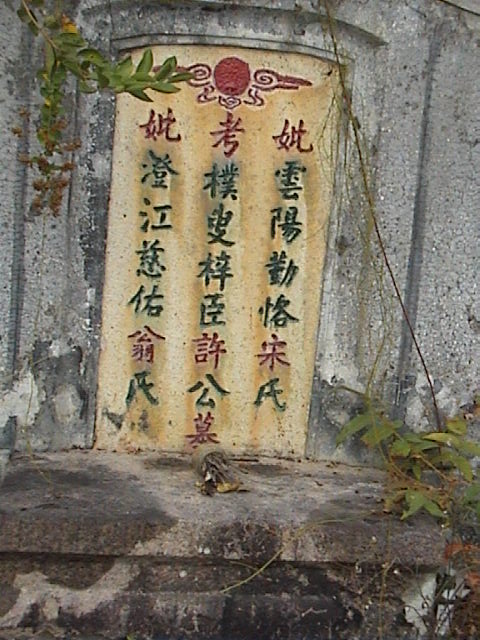 妣雲陽勤恪宋氏
考樸叟梓臣許公墓
妣澄江慈佑翁氏